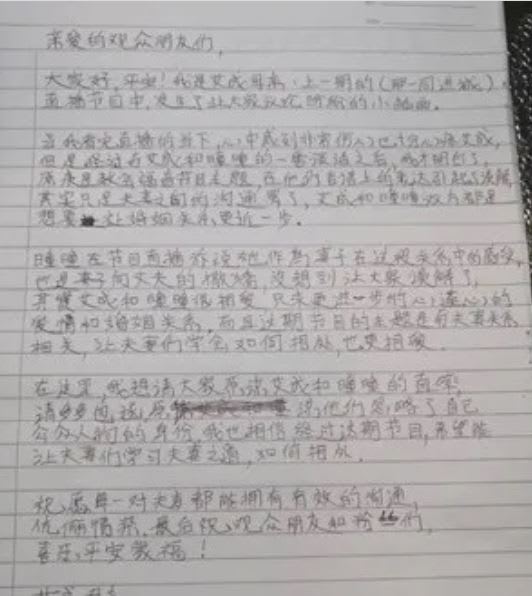 亲爱的观众朋友们,
大家好,平安!我是艾成母亲.上一期的(那一同进城)
直播节目中,发生了让大家议论纷纷的小插曲。
当我看完直播的当下,心中感到非常伤心也十分心疼艾成,
但是经过与艾成和瞳瞳的一番谈话之后,我才明白了,
原来是就会福音节目主题,在他们言语上的表达引起了误解,
其实只是夫妻之间的沟通罢了,艾成和瞳瞳双方都是
想要让婚姻关系更近一步。
瞳瞳在节目直播诉说她作为妻子在这段关系中的感受,
也是妻子向丈夫的撒娇,没想到让大家误解了,
其实艾成和瞳瞳很相爱,只求更进一步的心连心的
爱情和婚姻关系,而且这期节目的主题是与夫妻关系
相关,让夫妻们学会如何相处,也更相爱.
在这里,我想请大家原谅艾成和瞳瞳的直率,
请多多包涵,原谅他们忽略了自己
公众人物的身份.我也相信经过这期节目,希望能
让夫妻们学习夫妻之道,如何相处.
祝愿每一对夫妻都能拥有有效的沟通,
伉俪情深.最后祝观众朋友和粉丝们,
喜乐,平安蒙福!